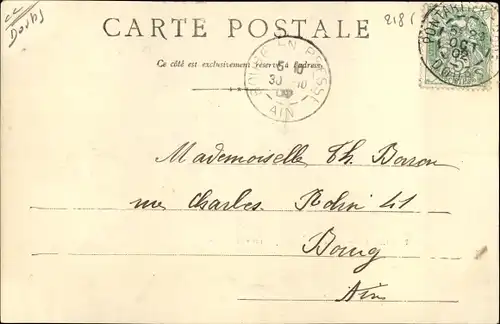 Doubs
2181
CARTE POSTALE
Ce côté est exclusivement réservé à l'adresse
BOURG EN BRESSE
5 10
30 10
AIN
PONTARLIER
OCT
DOUBS
Mademoiselle Th. Baron
rue Charles Robin 41
Bourg
Ain